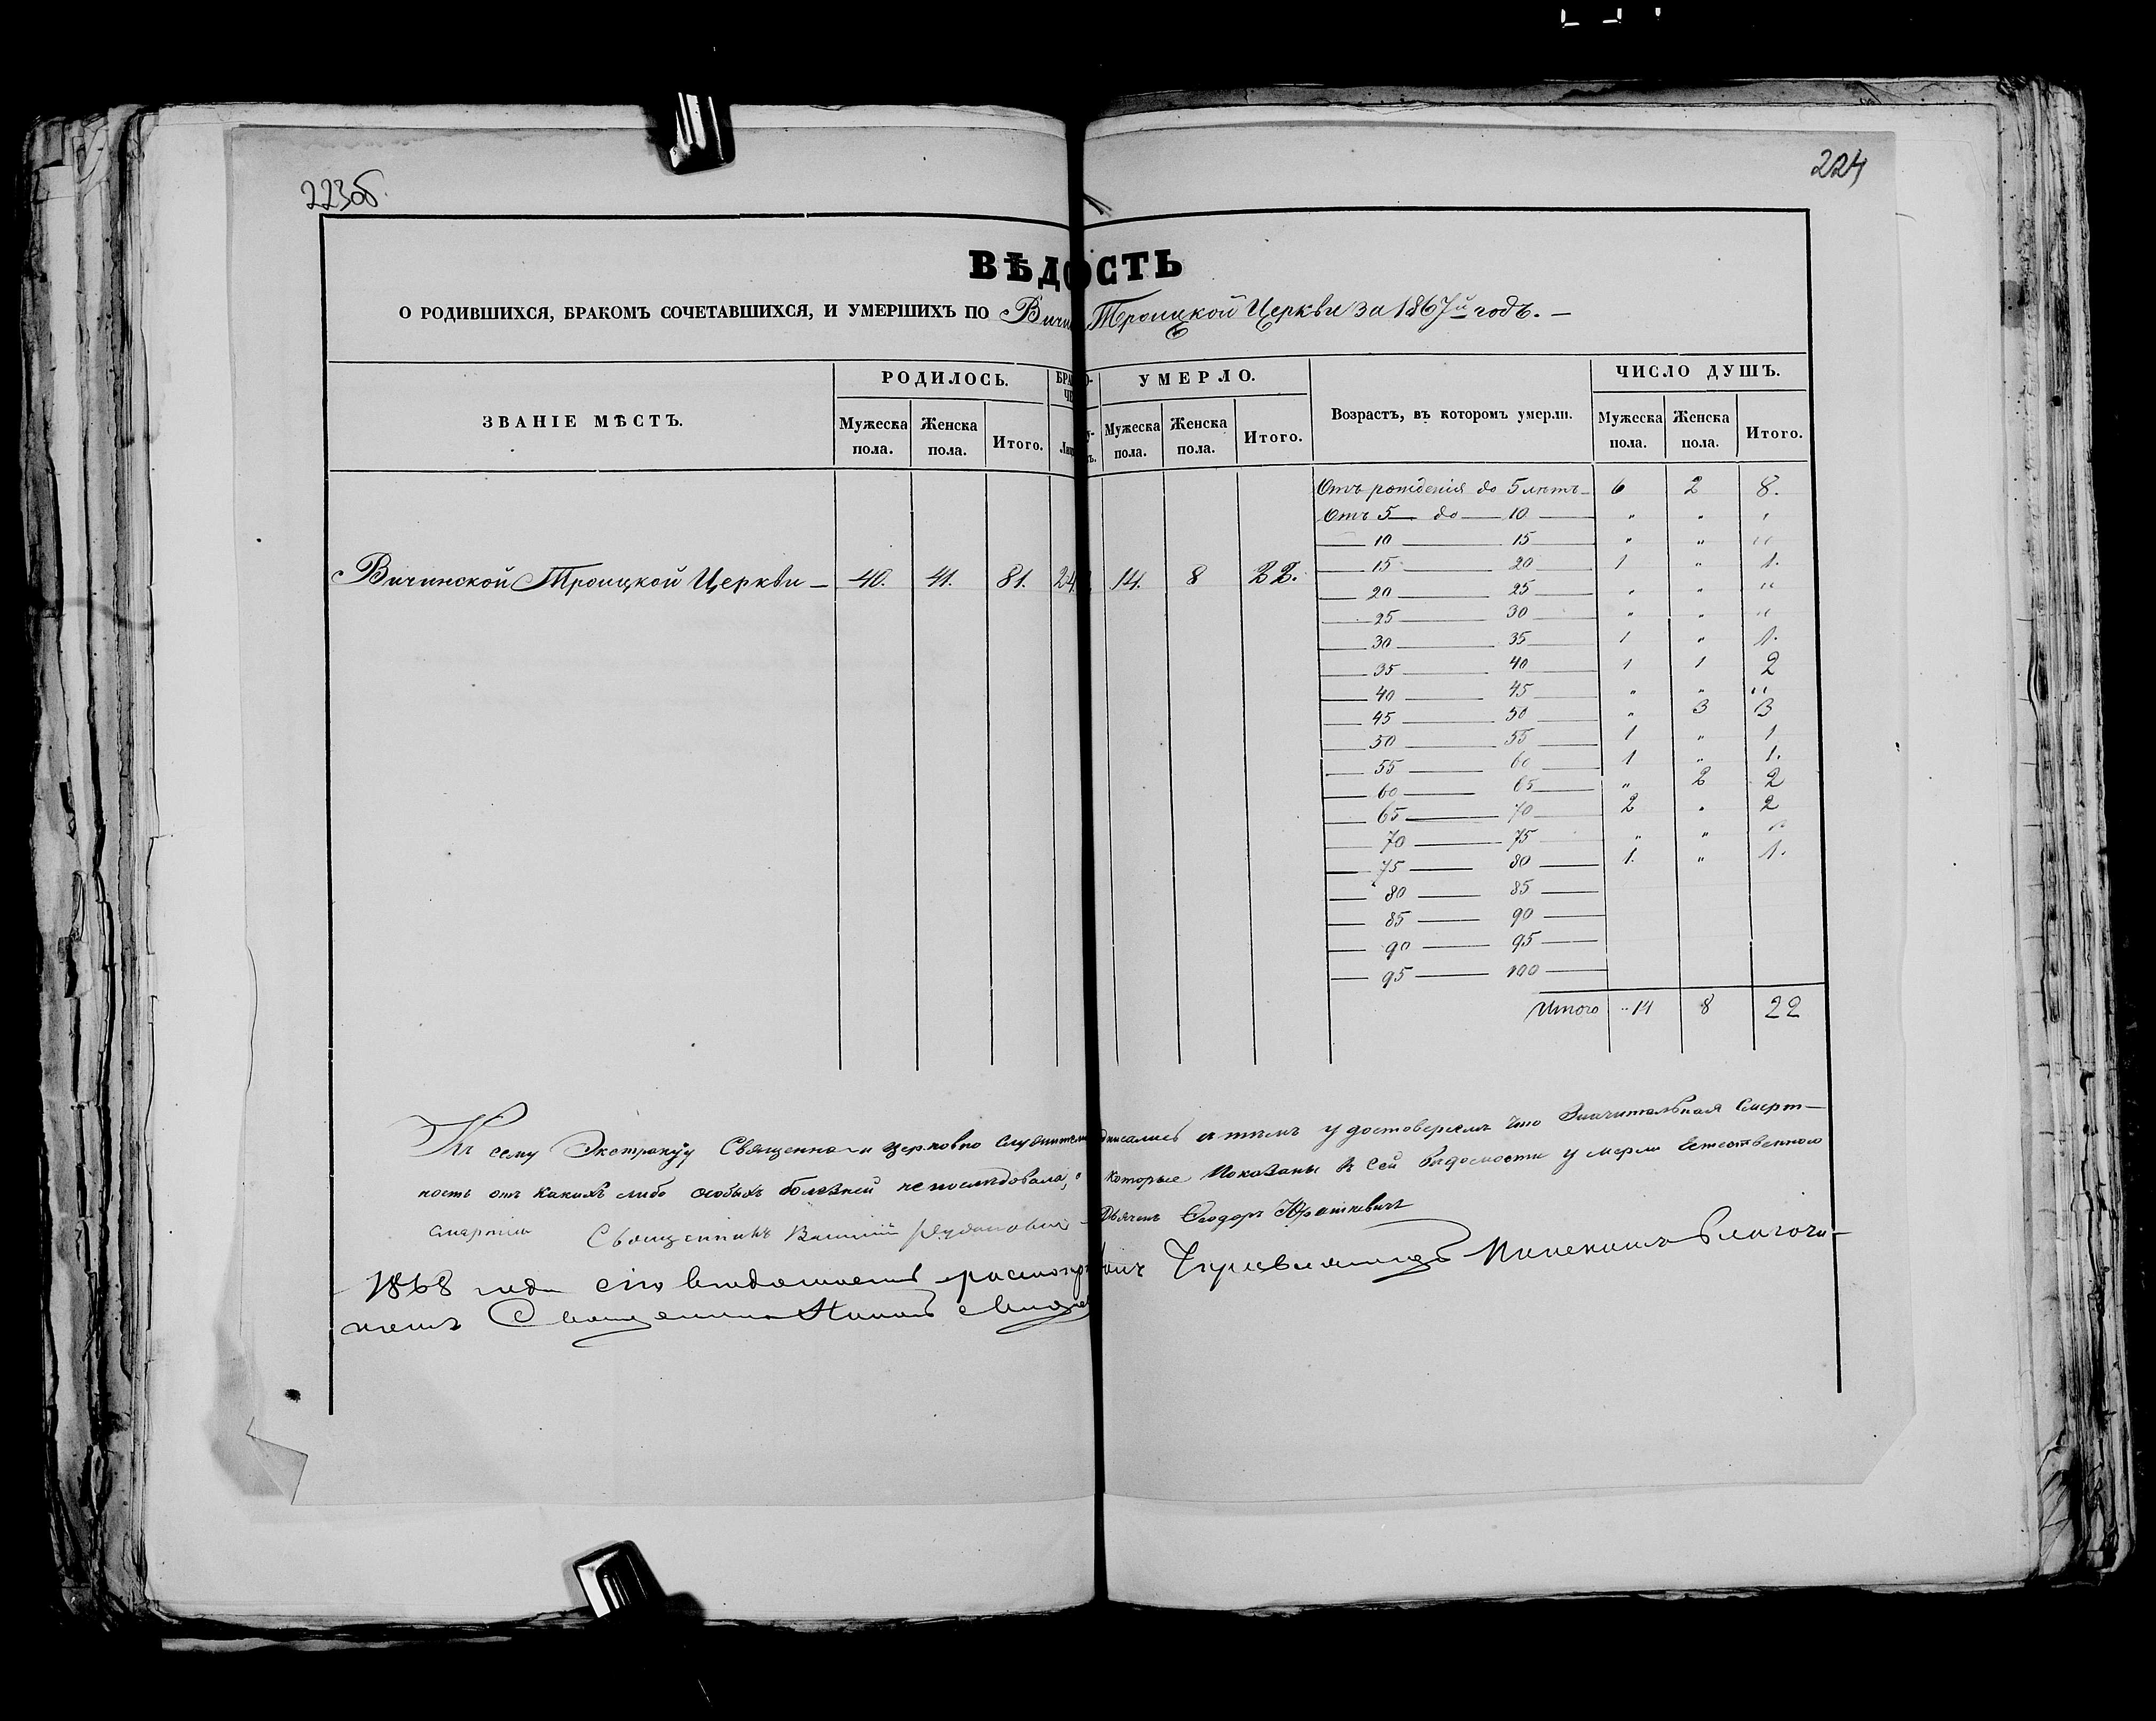 223об.
224
ВѢДОСТЬ
О РОДИВШИХСЯ, БРАКОМЪ СОЧЕТАВШИХСЯ, И УМЕРШИХЪ ПО Вичи Троицкой Церкви за 1867й годъ. —
ЗВАНІЕ МѢСТЪ.
РОДИЛОСЬ.
Мужеска пола.
Женска пола.
Итого.
УМЕРЛО.
Мужеска пола.
Женска пола.
Итого.
Возрастъ, въ которомъ умерли.
ЧИСЛО ДУШЪ.
Мужеска пола.
Женска пола.
Итого.
Вичинской Троицкой Церкви — 40. 41. 81. 24 14. 8 22.
Отъ рожденія до 5 лѣтъ — 6 2 8.
Отъ 5 — до — 10 — " " "
10 — 15 " " "
15 — 20 1 " 1.
20 — 25 " " "
25 — 30 " " "
30 — 35 1 " 1.
35 — 40 1 1 2
40 — 45 " " "
45 — 50 " 3 3
50 — 55 1 " 1
55 — 60 1 " 1.
60 — 65 " 2 2
65 — 70 2 " 2
70 — 75 " " "
75 — 80 1. " 1.
80 — 85
85 — 90
90 — 95
95 — 100
Итого 14 8 22
Къ сему Экстракту Священно и церковно служители дписались и тѣмъ удостоверяемъ что Значительная Смерт—
ность отъ какихъ либо особыхъ болезней не последовала, а которые Показаны въ Сей Вѣдомости умерли Естественною
смертію Священникъ Василій Дьячекъ Ѳеодоръ Юрашкевичъ
1868 года сію вѣдомость Благочи—
ный Священникъ